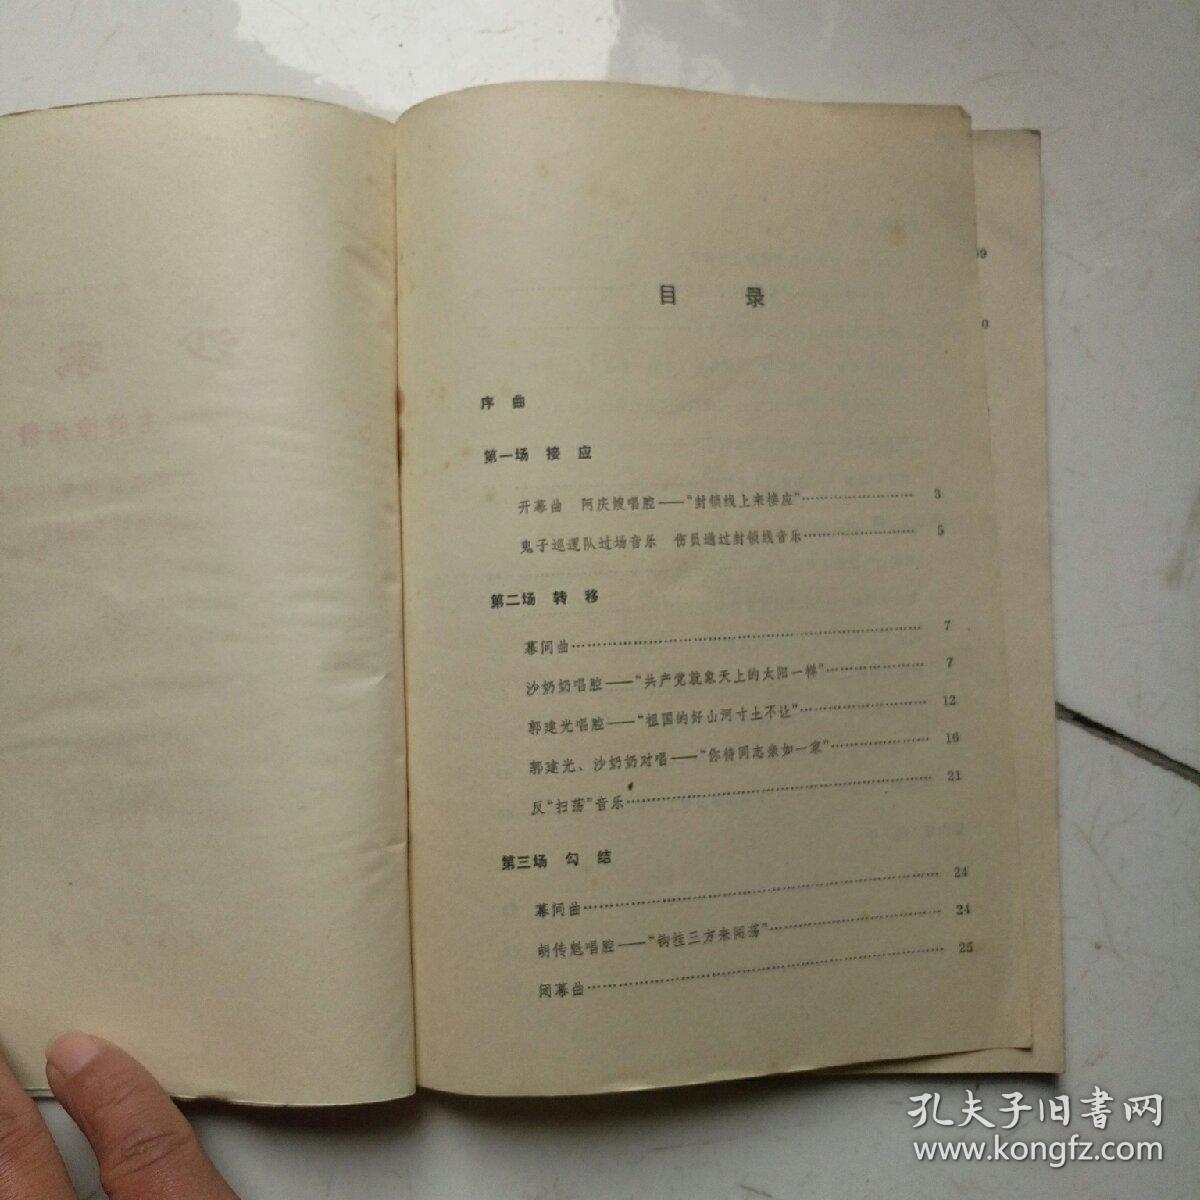 目 录
序 曲
第一场 接 应
开幕曲 阿庆嫂唱腔——“封锁线上来接应”…………………… 3
鬼子巡逻队过场音乐 伤员通过封锁线音乐…………………… 5
第二场 转 移
幕间曲…………………………………………………………… 7
沙奶奶唱腔——“共产党就象天上的太阳一样”……………… 7
郭建光唱腔——“祖国的好山河寸土不让”…………………… 12
郭建光、沙奶奶对唱——“你待同志亲如一家”……………… 16
反“扫荡”音乐…………………………………………………… 21
第三场 勾 结
幕间曲…………………………………………………………… 24
胡传魁唱腔——“钩挂三方来闹荡”…………………………… 24
闭幕曲…………………………………………………………… 25
孔夫子旧书网
www.kongfz.com